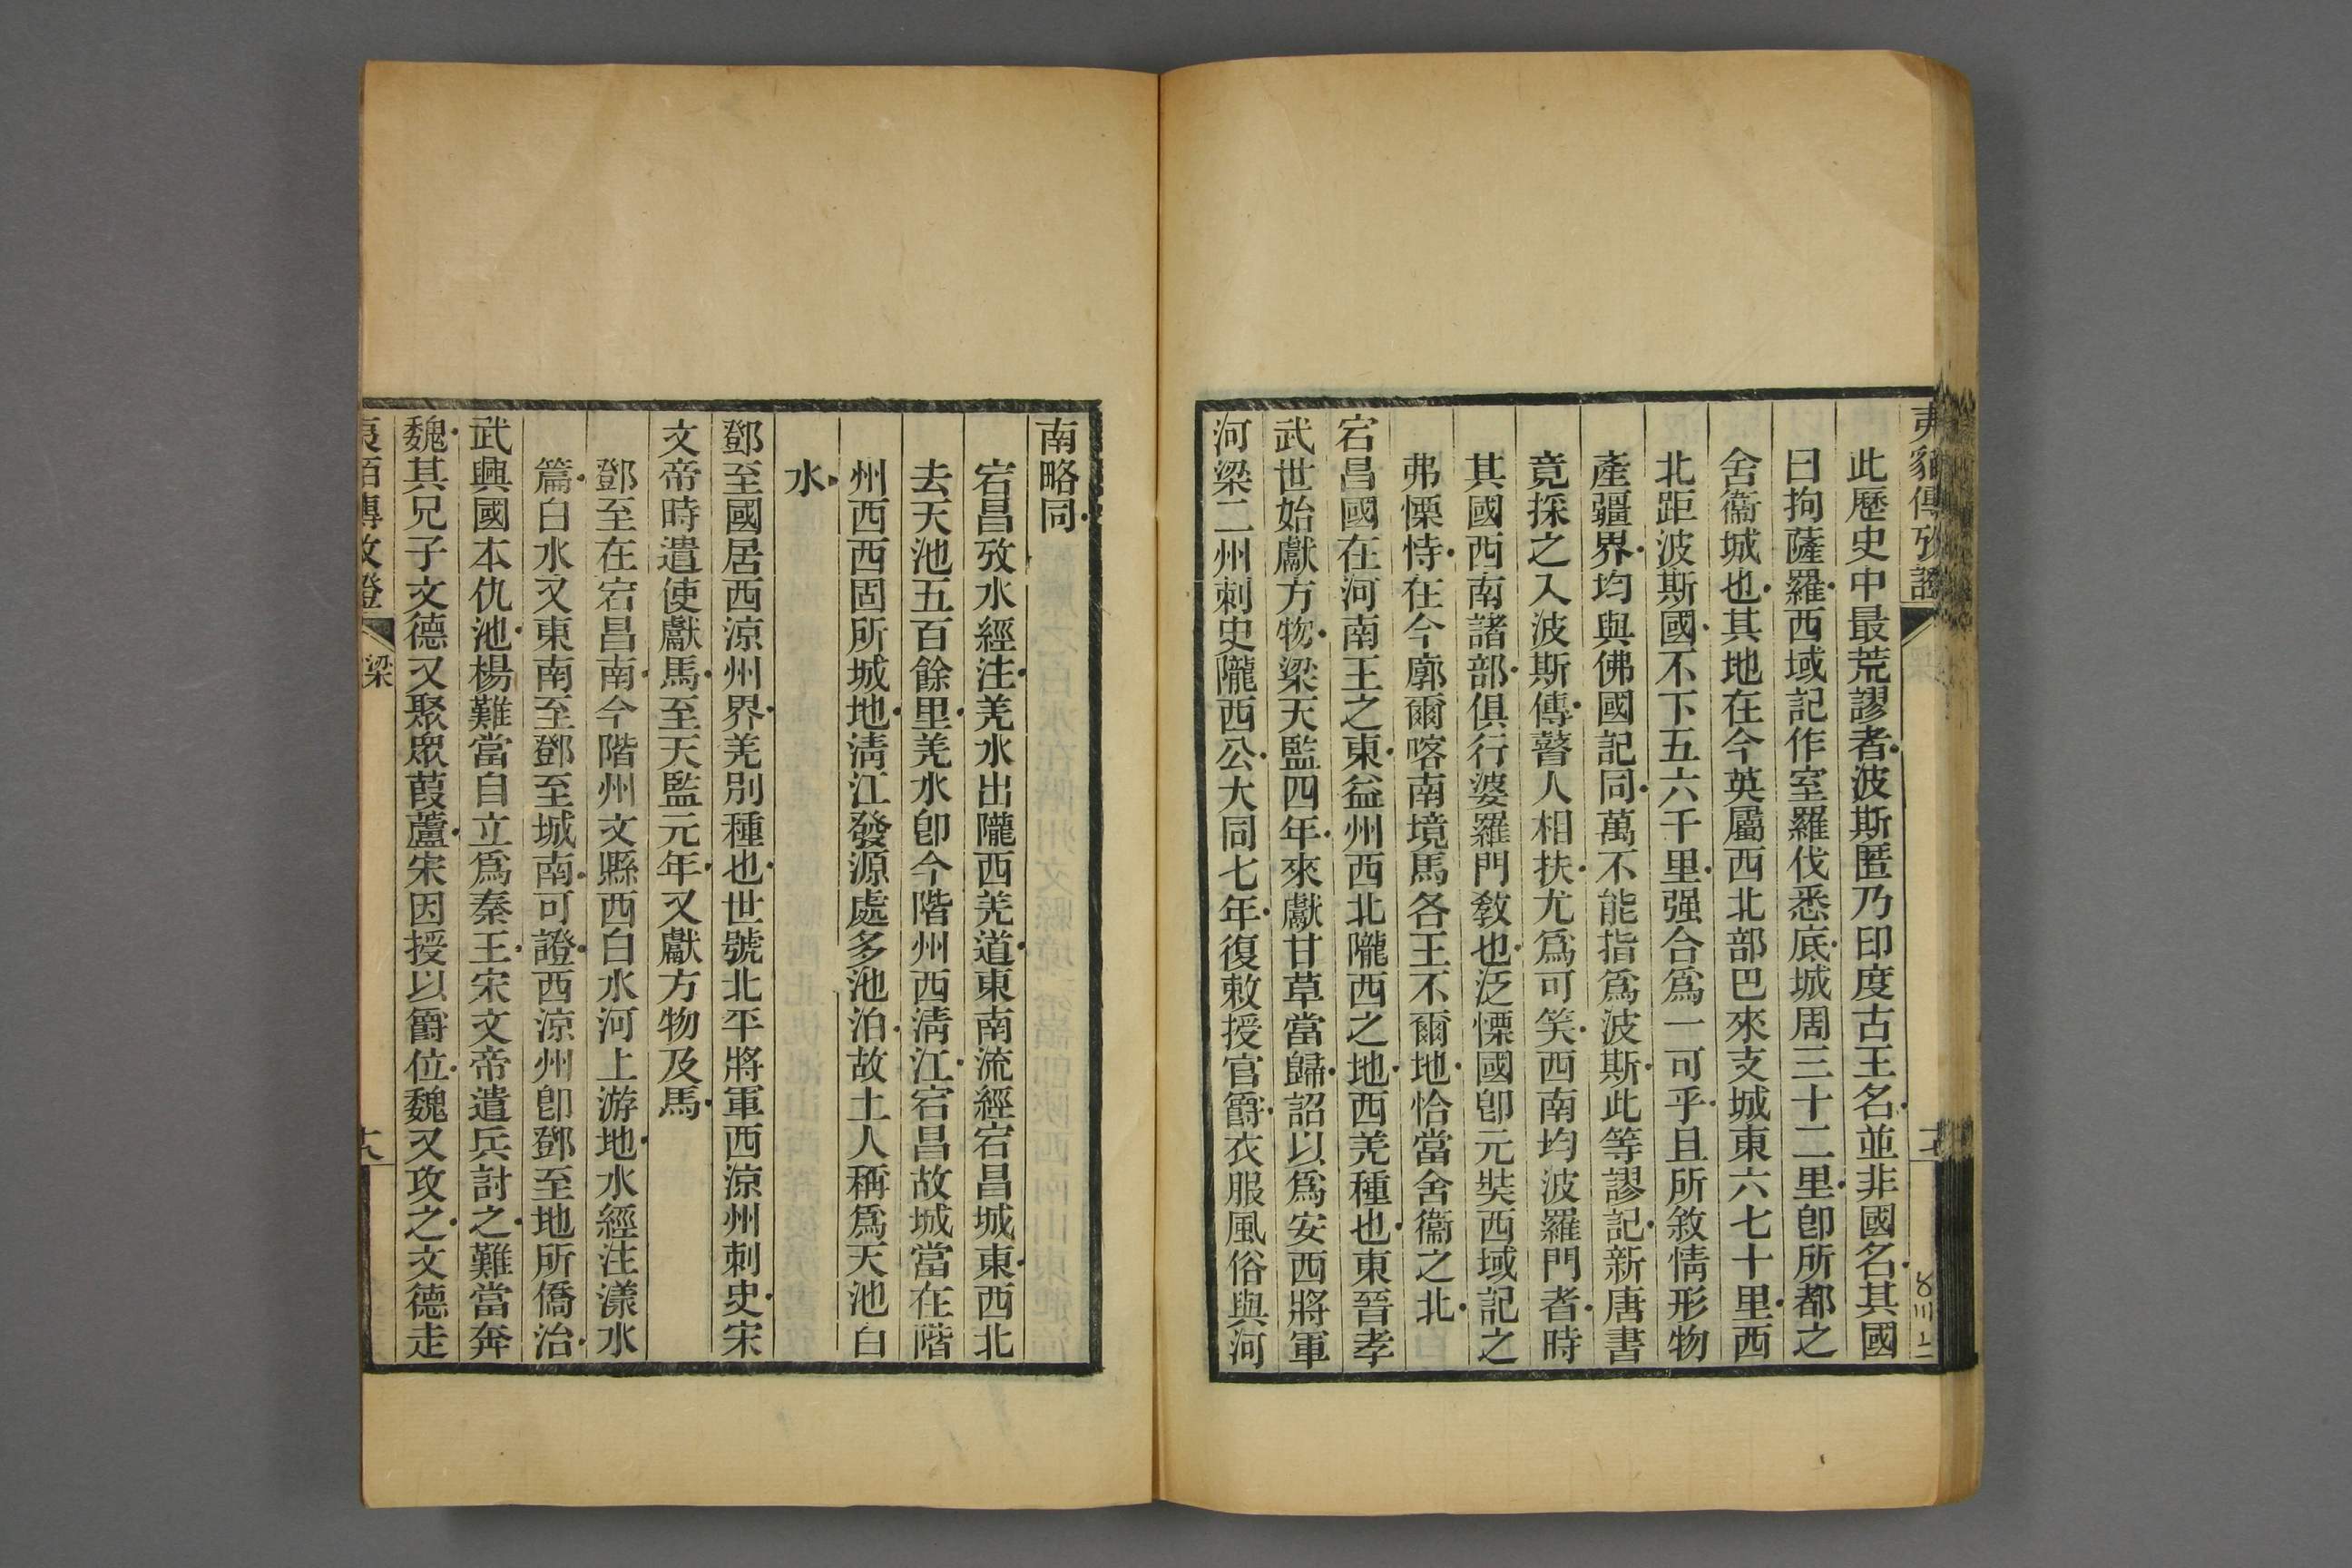 夷貊傳攷證
此歷史中最荒謬者波斯匿乃印度古王名並非國名其國
曰拘薩羅西域記作室羅伐悉底城周三十二里卽所都之
舍衞城也其地在今英屬西北部巴來支城東六七十里西
北距波斯國不下五六千里强合爲一可乎且所敘情形物
產疆界均與佛國記同萬不能指爲波斯此等謬記新唐書
竟採之入波斯傳瞽人相扶尤爲可笑西南均波羅門者時
其國西南諸部俱行婆羅門敎也泛慄國卽元奘西域記之
弗慄恃在今廓爾喀南境馬各王不爾地恰當舍衞之北
宕昌國在河南王之東益州西北隴西之地西羌種也東晉孝
武世始獻方物梁天監四年來獻甘草當歸詔以爲安西將軍
河梁二州刺史隴西公大同七年復敕授官爵衣服風俗與河
南略同
宕昌攷水經注羌水出隴西羌道東南流經宕昌城東西北
去天池五百餘里羌水卽今階州西淸江宕昌故城當在階
州西西固所城地淸江發源處多池泊故土人稱爲天池白
水
鄧至國居西涼州界羌別種也世號北平將軍西涼州刺史宋
文帝時遣使獻馬至天監元年又獻方物及馬
鄧至在宕昌南今階州文縣西白水河上游地水經注漾水
篇白水又東南至鄧至城南可證西涼州卽鄧至地所僑治
武興國本仇池楊難當自立爲秦王宋文帝遣兵討之難當奔
魏其兄子文德又聚眾葭蘆宋因授以爵位魏又攻之文德走
梁